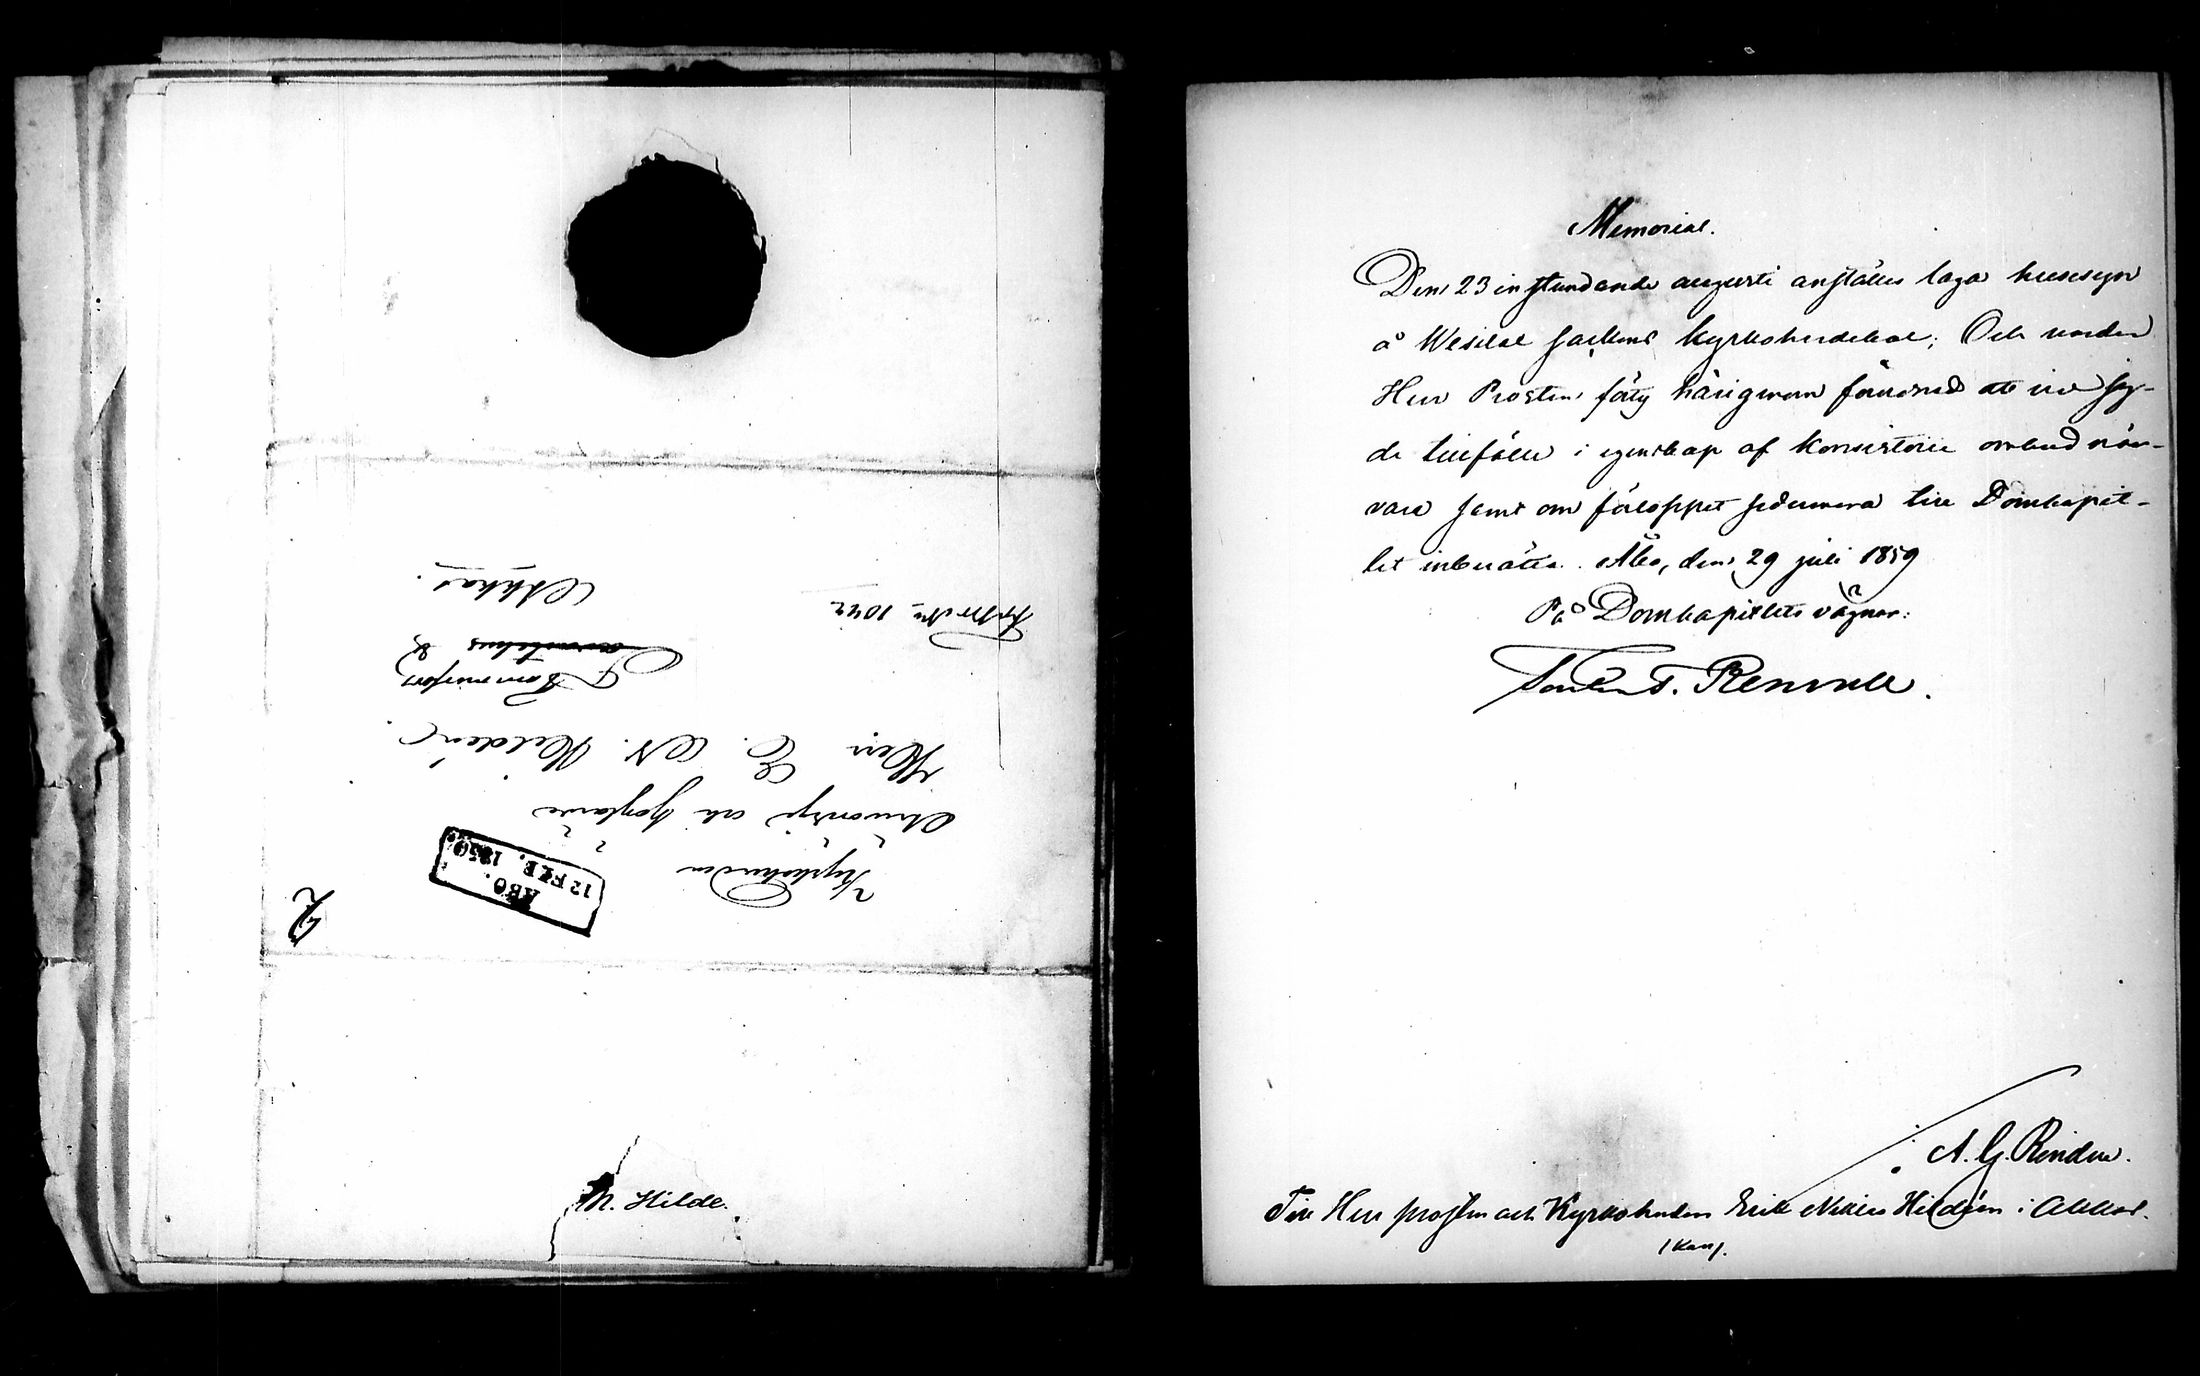 Kyrkoherden
Ärevördige och höglärde
Herr E. N. Hildén
Tammerfors
Tavastehus &
Akkas.
Fr Br No 1042
ÅBO.
12 FEB. 1859
2
N. Hildé.
Memorial.
Den 23 instundande augusti anställes laga husesyn
å Wesilax sockens kyrkoherdebol; Och varder
Herr Prosten förty härigenom förordnad att vid sag-
de tillfälle i egenskap af Konsistorii ombud när-
vara samt om förloppet sedermera till Domkapit-
let inberätta. Åbo, den 29 juli 1859
På Domkapitlets vägnar:
T. Renvall.
A. G. Rindell.
Till Herr prosten och Kyrkoherden Erik Niklas Hildén i Akkas.
(Kans).